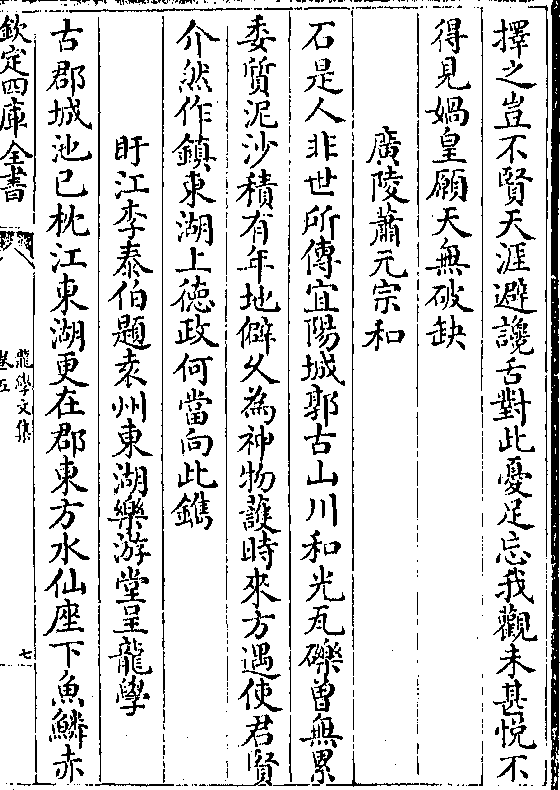 擇之豈不賢天涯避讒舌對此憂足忘我觀未甚悅不
得見媧皇願天無破缺
廣陵蕭元宗和
石是人非世所傳宜陽城郭古山川和光瓦礫曽無累
委質泥沙積有年地僻久為神物護時來方遇使君賢
介然作鎮東湖上德政何當向此鐫
盱江李泰伯題袁州東湖樂游堂呈龍學
古郡城池已枕江東湖更在郡東方水仙座下魚鱗赤
欽定四庫全書
龍學文集
卷五
七